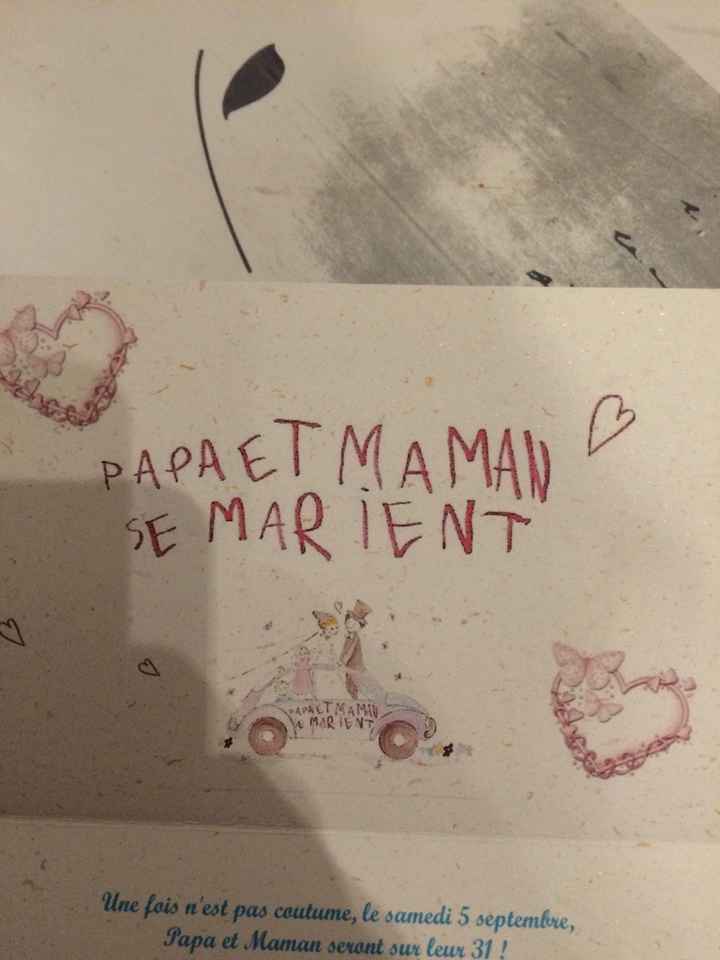 PAPA ET MAMAN
SE MARIENT
PAPA ET MAMAN
SE MARIENT
Une fois n'est pas coutume, le samedi 5 septembre,
Papa et Maman seront sur leur 31 !